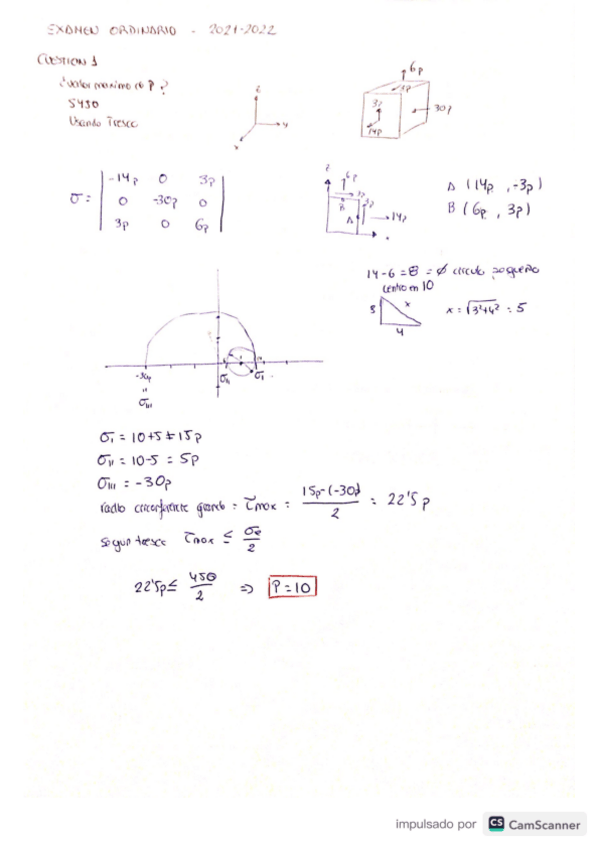 EXAMEN ORDINARIO - 2021-2022
CUESTION 1
¿Valor maximo de P?
S450
Usando Tresca
z
y
x
6p
3p
3p
14p
30p
σ = | -14p 0 3p |
| 0 -30p 0 |
| 3p 0 6p |
z
6p
3p
B
3p
A
14p
A (14p, -3p)
B (6p, 3p)
14-6 = 8 = ø circulo pequeño
centro en 10
3
x
4
x = √3²+4² = 5
-30p
"
σIII
σII
σI
σI = 10+5 = 15p
σII = 10-5 = 5p
σIII = -30p
radio circunferencia grande = τmax = 15p-(-30p) / 2 = 22'5p
segun tresca τmax ≤ σe / 2
22'5p ≤ 450 / 2 => P=10
impulsado por CS CamScanner